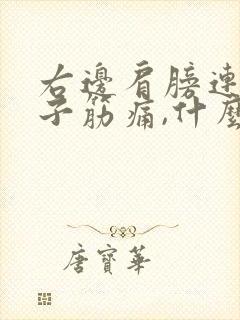 右邊肩膀連
子筋痛,什麼
唐寶華